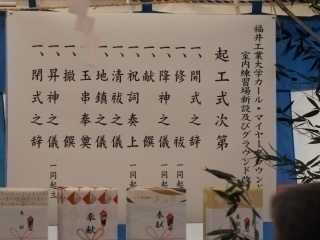 福井工業大学カール・マイヤーグラウンド
室内練習場新設及びグラウンド改
起工式次第
一、開式之辞
一、修祓 一同起立
一、降神之儀 一同起立
一、献饌
一、祝詞奏上 一同起立
一、清祓之儀
一、地鎮之儀
一、玉串奉奠
一、撤饌
一、昇神之儀 一同起立
一、閉式之辞
奉献
奉献
奉献